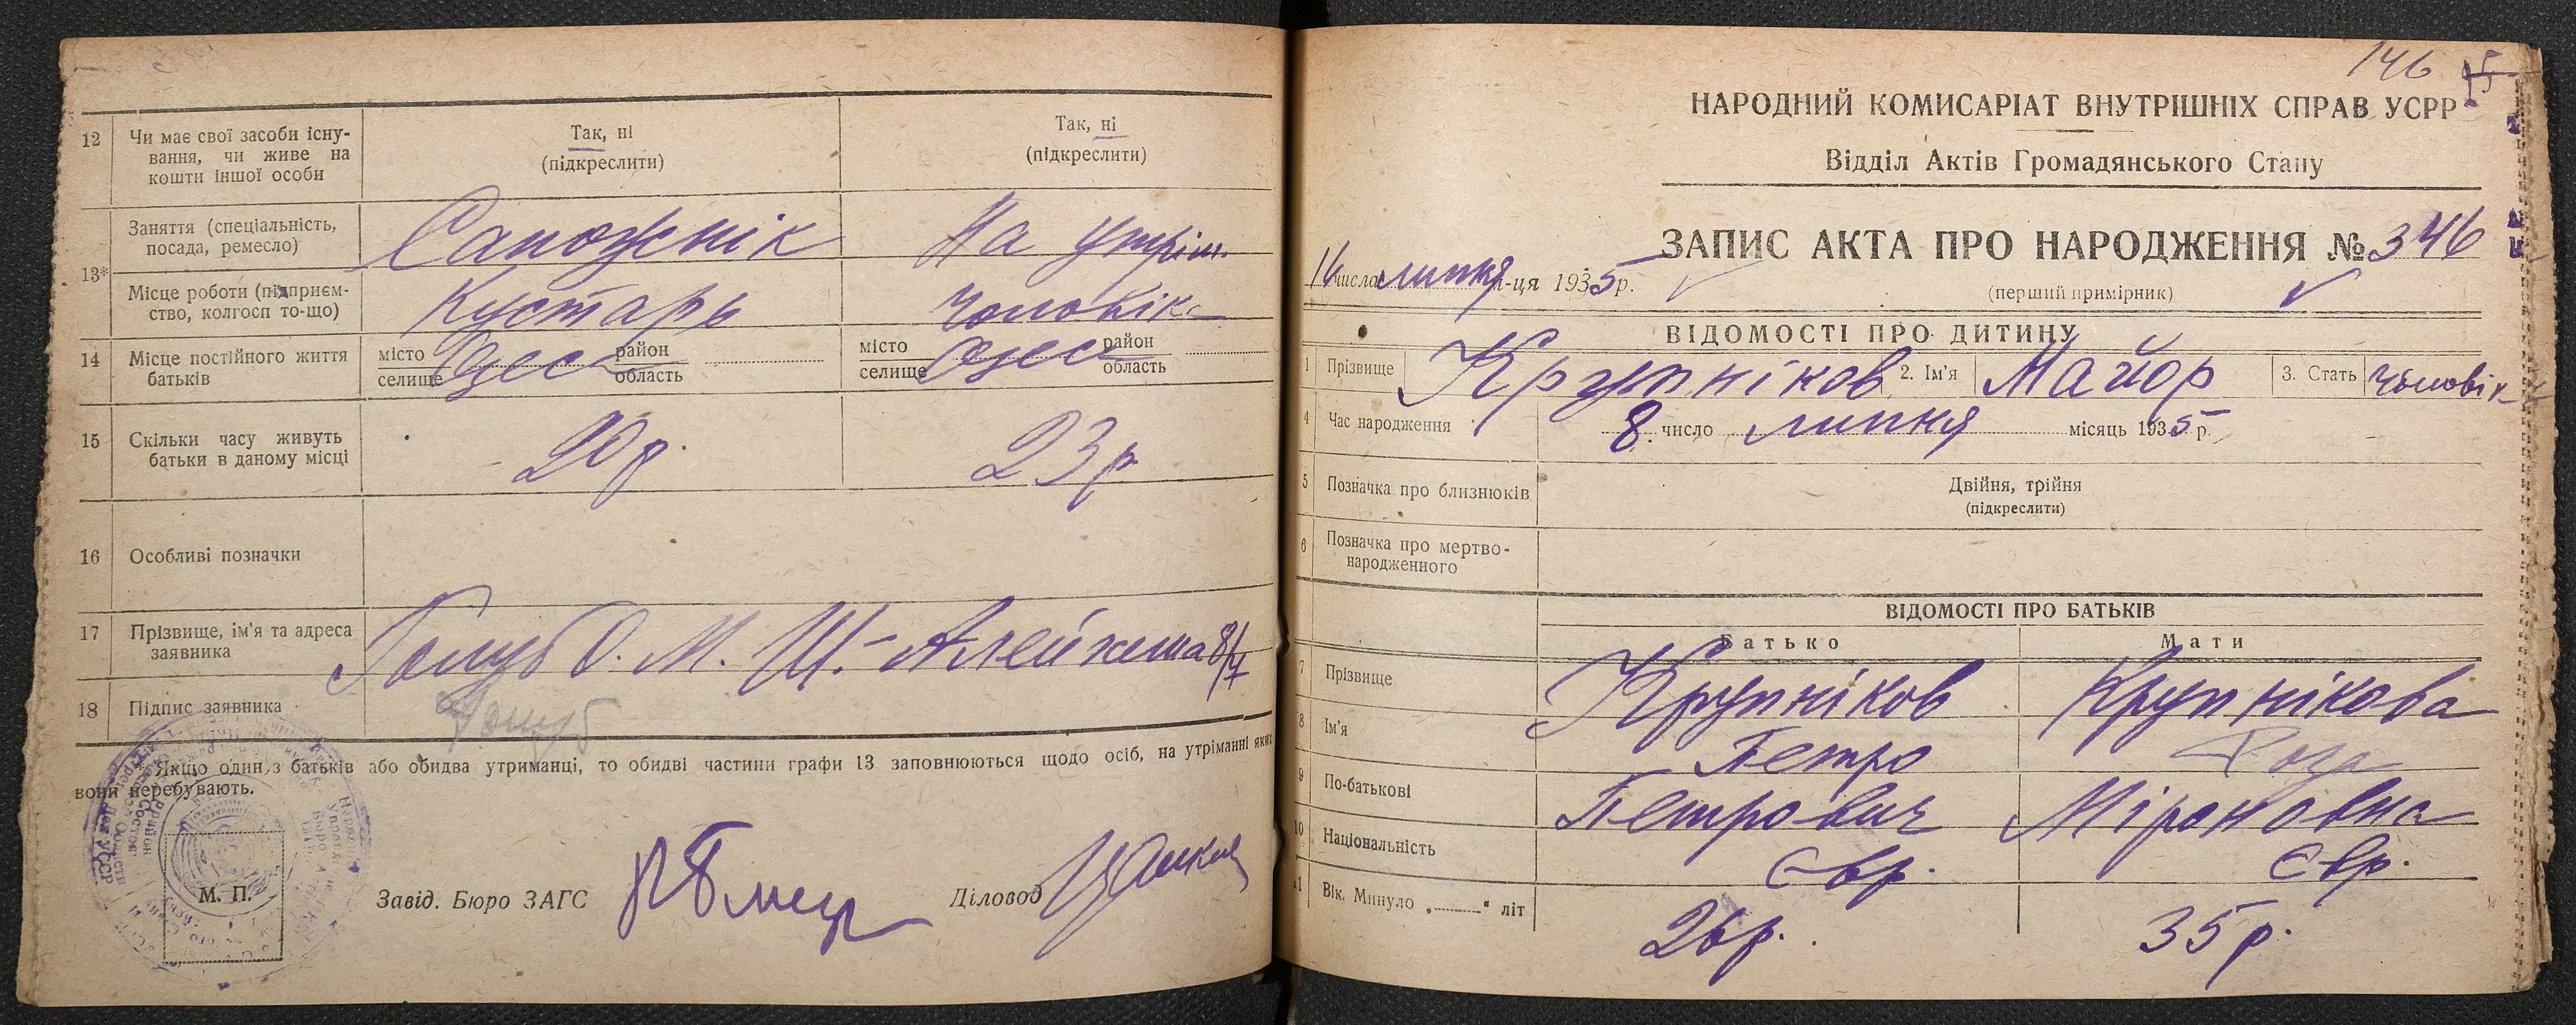 12 Чи має свої засоби існу-
вання, чи живе на
кошти іншої особи
Так, ні
(підкреслити)
Так, ні
(підкреслити)
13*
Заняття (спеціальність,
посада, ремесло)
Сапожнік
На утрім.
Місце роботи (підприєм-
ство, колгосп то-що)
Кустарь
Чоловік
14 Місце постійного життя
батьків
місто
селище
Одеса
район
область
місто
селище
Одеса
район
область
15 Скільки часу живуть
батьки в даному місці
20 р.
23 р
16 Особливі позначки
17 Прізвище, ім'я та адреса
заявника
Голуб О. М. Ш.-Алейхема 8/7
18 Підпис заявника
Голуб
* Якщо один з батьків або обидва утриманці, то обидві частини графи 13 заповнюються щодо осіб, на утриманні яких
вони перебувають.
М. П.
Завід. Бюро ЗАГС
Діловод
146
НАРОДНИЙ КОМИСАРІАТ ВНУТРІШНІХ СПРАВ УСРР
Відділ Актів Громадянського Стану
ЗАПИС АКТА ПРО НАРОДЖЕННЯ № 346
16 числа липня м-ця 1935 р.
(перший примірник)
ВІДОМОСТІ ПРО ДИТИНУ
1 Прізвище Крупніков 2. Ім'я Майор 3. Стать чоловік
4 Час народження 8 число липня місяць 1935 р.
5 Позначка про близнюків
Двійня, трійня
(підкреслити)
6 Позначка про мертво-
народженного
ВІДОМОСТІ ПРО БАТЬКІВ
Батько Мати
7 Прізвище Крупніков Крупнікова
8 Ім'я Петро Роза
9 По-батькові Петрович Міроновна
10 Національність Євр. Євр.
11 Вік. Минуло „ “ літ 26 р. 35 р.